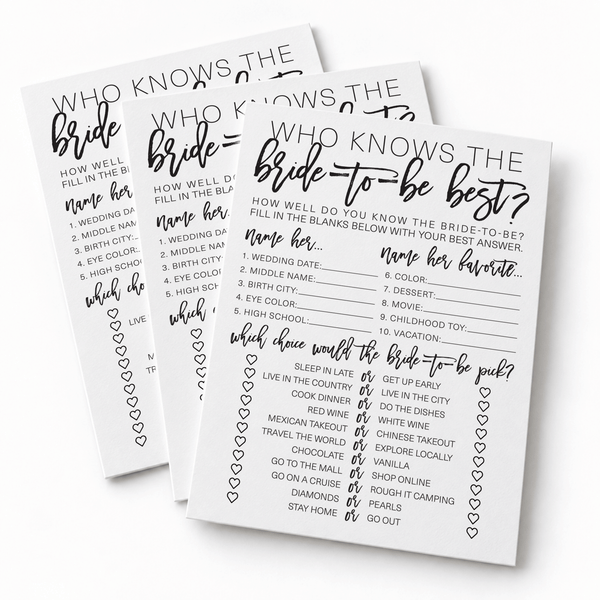 WHO KNOWS THE
bride-to-be best?
HOW WELL DO YOU KNOW THE BRIDE-TO-BE?
FILL IN THE BLANKS BELOW WITH YOUR BEST ANSWER.
name her...
1. WEDDING DATE:
2. MIDDLE NAME:
3. BIRTH CITY:
4. EYE COLOR:
5. HIGH SCHOOL:
name her favorite...
6. COLOR:
7. DESSERT:
8. MOVIE:
9. CHILDHOOD TOY:
10. VACATION:
which choice would the bride-to-be pick?
SLEEP IN LATE or GET UP EARLY
LIVE IN THE COUNTRY or LIVE IN THE CITY
COOK DINNER or DO THE DISHES
RED WINE or WHITE WINE
MEXICAN TAKEOUT or CHINESE TAKEOUT
TRAVEL THE WORLD or EXPLORE LOCALLY
CHOCOLATE or VANILLA
GO TO THE MALL or SHOP ONLINE
GO ON A CRUISE or ROUGH IT CAMPING
DIAMONDS or PEARLS
STAY HOME or GO OUT
WHO KNOWS THE
bride
HOW WELL DO
FILL IN THE BLA
name her
1. WEDDING DA
2. MIDDLE NAM
3. BIRTH CITY:
4. EYE COLOR:
5. HIGH SCHOO
which
WHO KNOWS THE
bride
HOW WELL
FILL IN THE B
name her
1. WEDDING DA
2. MIDDLE NAM
3. BIRTH CITY:
4. EYE COLOR:
5. HIGH SCHOO
which cho
LIVE